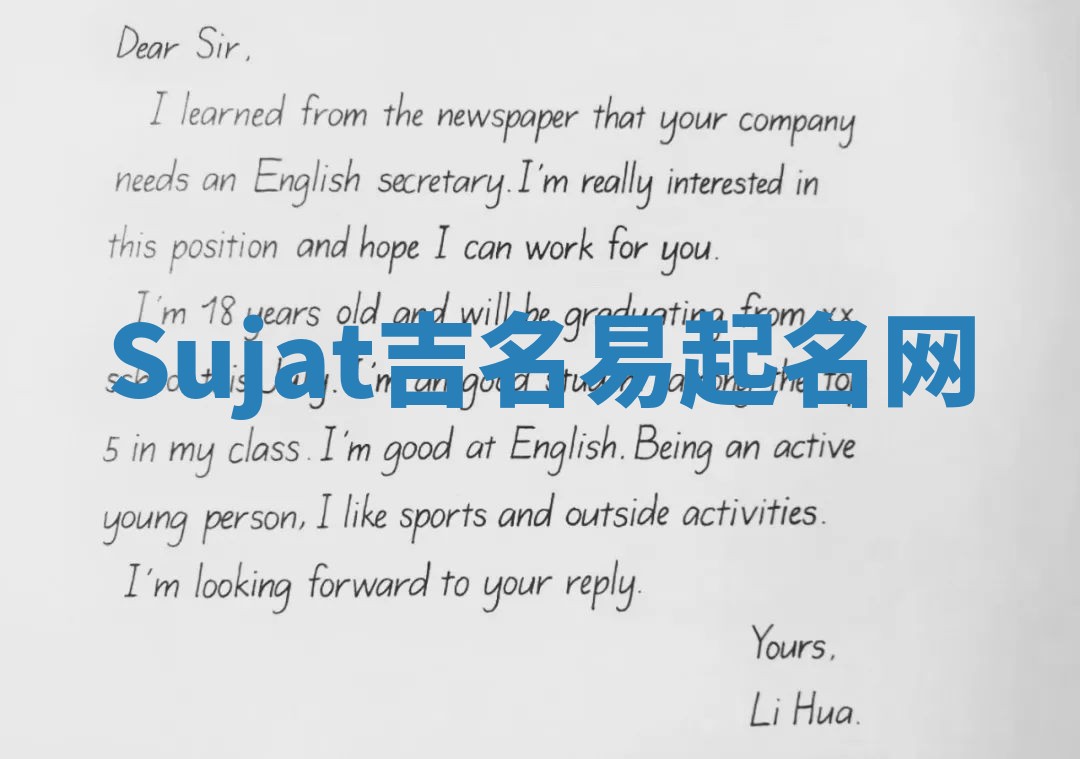 Dear Sir,
I learned from the newspaper that your company
needs an English secretary. I'm really interested in
this position and hope I can work for you.
I'm 18 years old and will be graduating from xx
Sujat吉名易起名网
school this July. I'm an good student among the top
5 in my class. I'm good at English. Being an active
young person, I like sports and outside activities.
I'm looking forward to your reply.
Yours,
Li Hua.